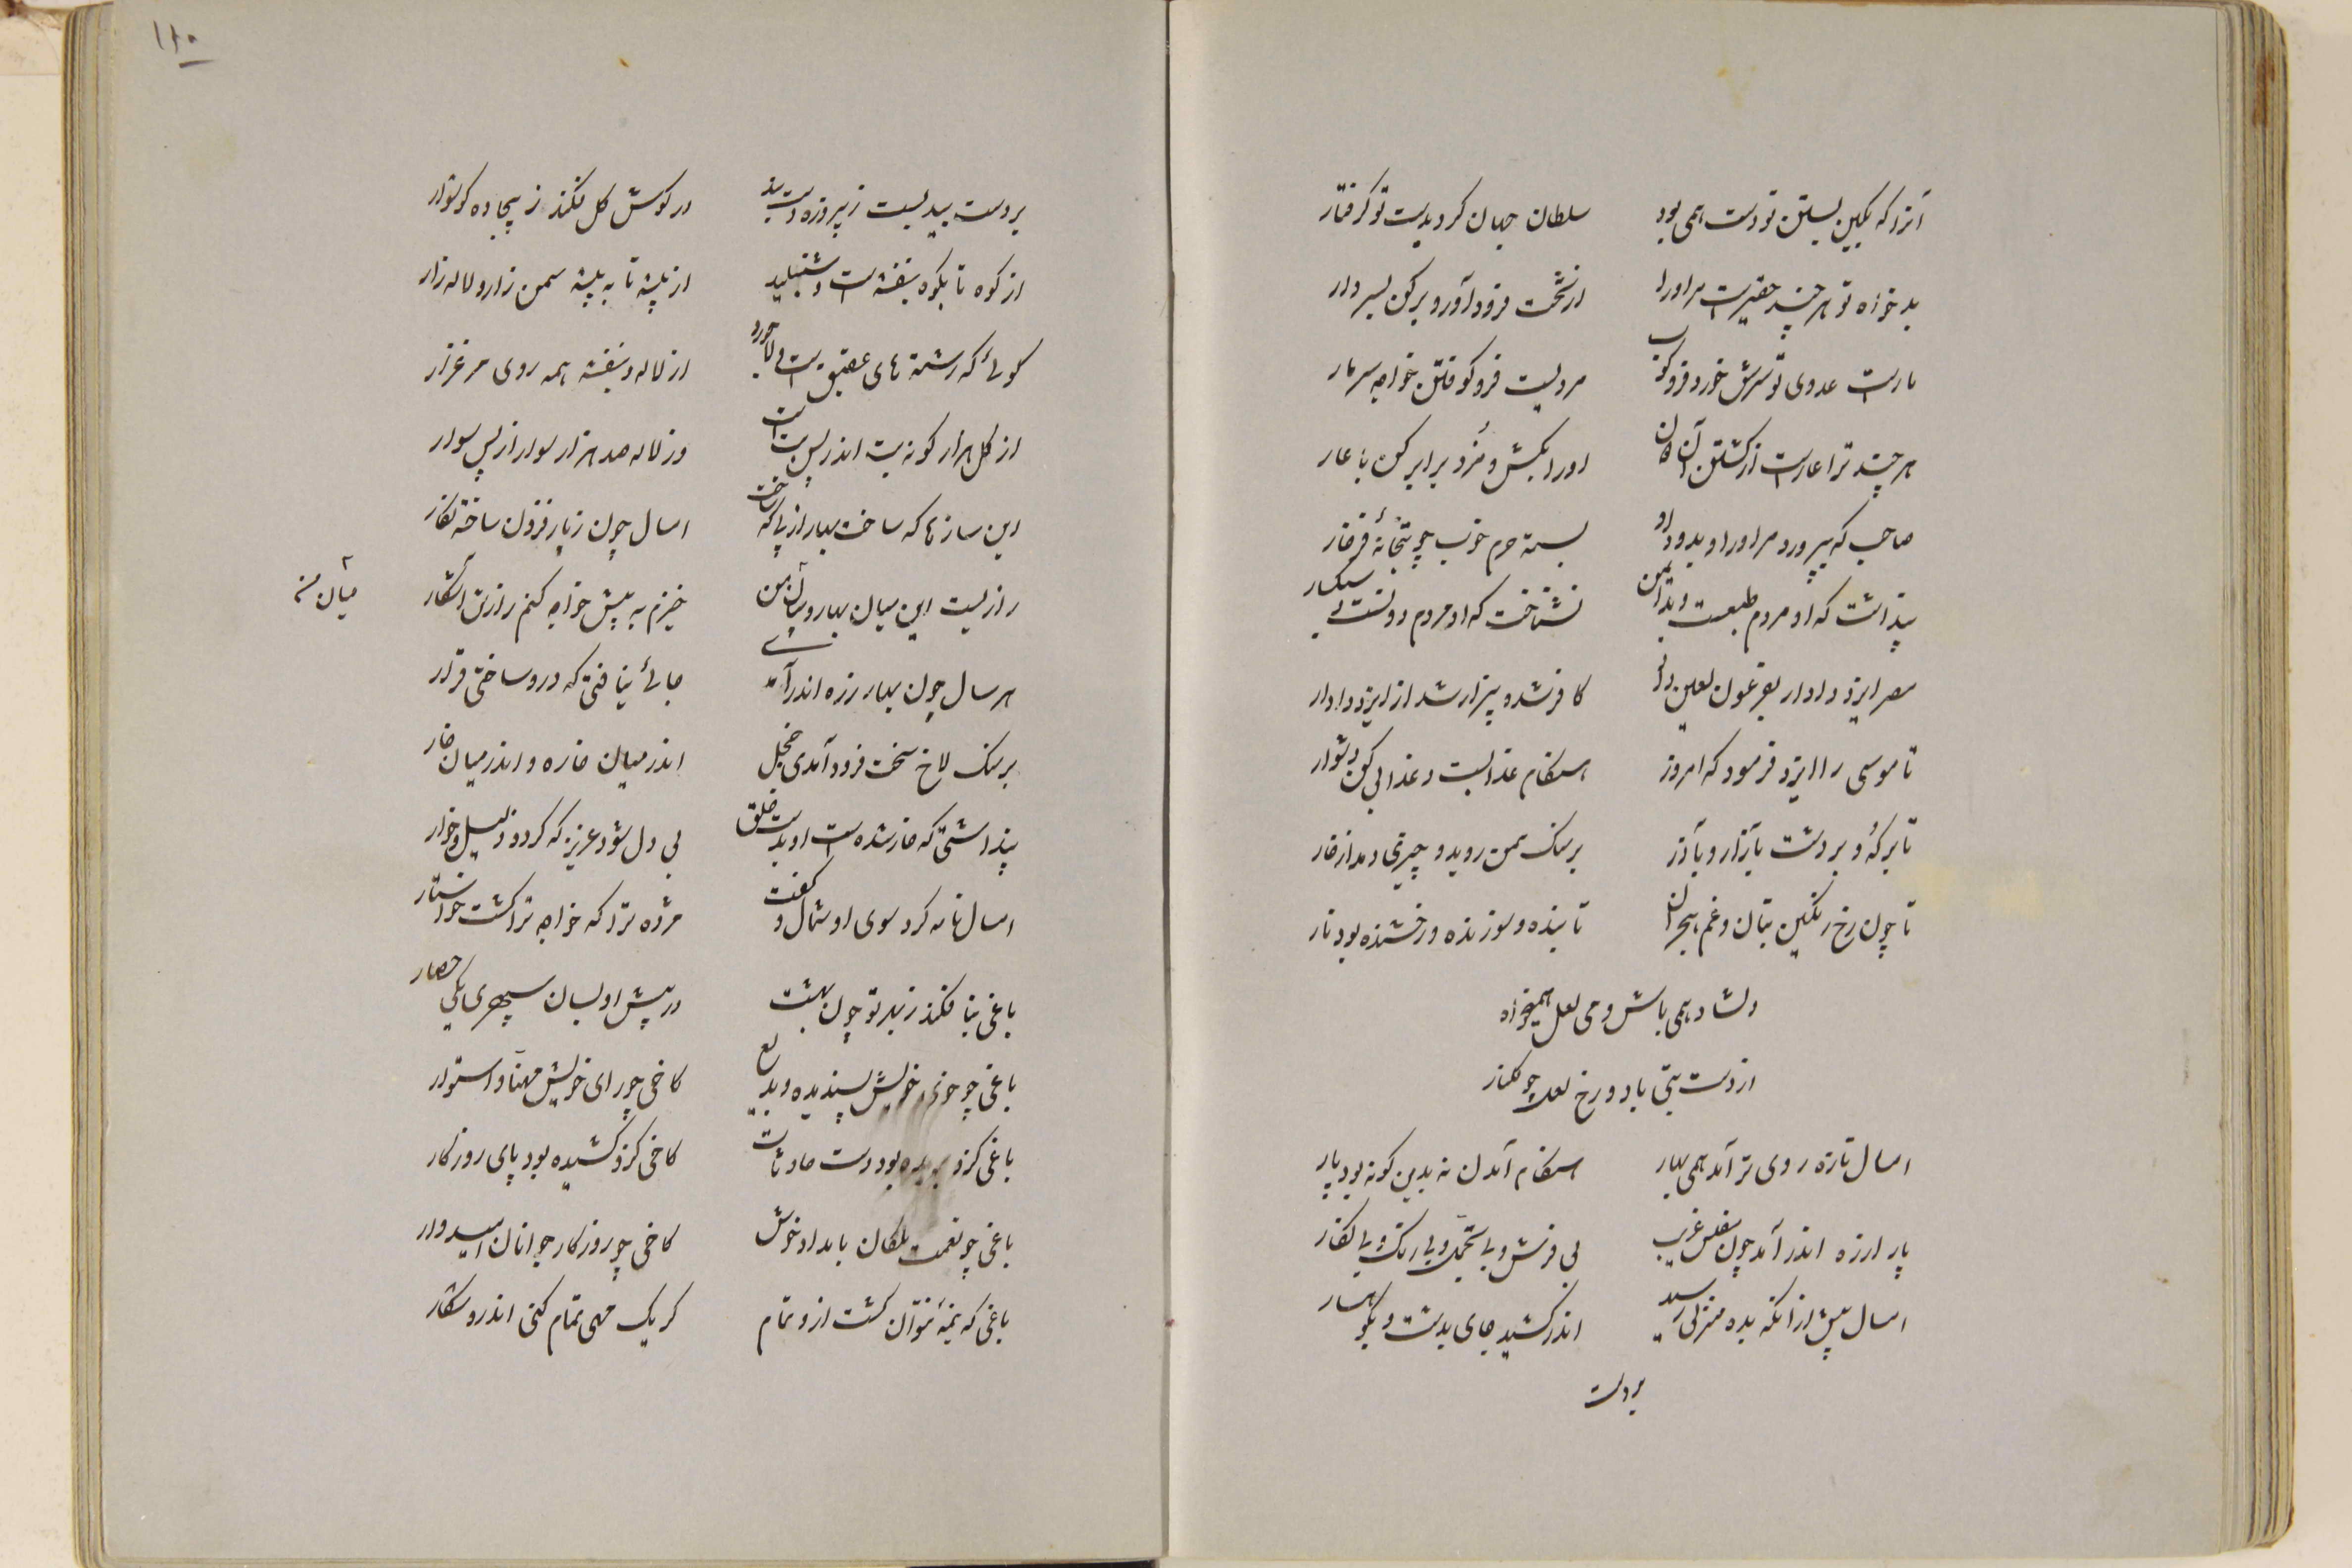 آنرا که بکین بستن تو دست همی بود سلطان جهان کرد بدست تو گرفتار
بدخواه تو هر چند حقیرست مر او را از تخت فرود آور و بر کن بسر دار
مارست عدوی تو سرش خورد فروکوب مردیست فرو کوفتن خواجه سر مار
هر چند ترا عارست از کشتن آن دون او را بکش و مزد برابر کن با عار
صاحب که بپرورد مر او را و بدو داد بسته حرم خوب چو بتخانهٔ فرخار
پنداشت که او مردم طبعست و بد ایمن نشناخت که او مردم دونست سبکسار
مصر ایزد دادار بفرعون لعین داد کافر شد و بیزار شد از ایزد دادار
تا موسی را ایزد فرمود که امروز هنگام عذابست و عذابی کن دشوار
تا بر که و بر دشت بآزار و بآذر بر سنگ سمن روید و چیزی دمد از خار
تا چون رخ رنگین بتان و غم هجران تابنده و سوزنده و رخشنده بود نار
دلشاد همی باش و می لعل همیخواه
از دست بتی با دو رخ لعل چو گلنار
امسال تازه روی تر آمد همی بهار هنگام آمدن نه بدین گونه بود پار
پار از ره اندر آمد چون مفلس غریب بی فرش و بی تجمل و بی رنگ و بی نگار
امسال پیش از آنکه بده منزلی رسید اندر کشید جای بدشت و بکوهسار
بر دست
۱۱۰
بر دست بید بست ز پیروزه دست بند در گوش گل فکند ز بیجاده گوشوار
از کوه تا بکوه بنفشه ست و شنبلید از پشته تا به پشته سمن زار و لاله زار
گوئی که رشته های عقیق ست و لاجورد از لاله و بنفشه همه روی مرغزار
از گل هزار گونه بت اندر پس بت است وز لاله صد هزار سوار از پس سوار
این سازها که ساخت بهار از پی که ساخت امسال چون ز پار فزون ساخت نگار
رازیست این میان بهار و میان من خیزم به پیش خواجه کنم رازش آشکار
میان من
هر سال چون بهار ز ره اندر آمدی جائی نیافتی که درو ساختی قرار
بر سنگ لاخ سخت فرود آمدی خجل اندر میان خاره و اندر میان خار
پنداشتی که خار شده ست او بدست خلق بی دل شود عزیز که گردد ذلیل و خوار
امسال نامه کرد سوی او شمال و گفت مژده ترا که خواجه ترا گشت خواستار
باغی بنا فکند ز بهر تو چون بهشت در پیش او بسان سپهری یکی حصار
باغی چو خوی خویش پسندیده و بدیع کاخی چو رای خویش مهنا و استوار
باغی کزو بریده بود دست حادثات کاخی کزو کشیده بود پای روزگار
باغی چو نعمت ملکان بامداد خوش کاخی چو روزگار جوانان امیدوار
باغی که نیمهٔ نتوان گشت ازو تمام گر یک مهی تمام کنی اندرو شکار